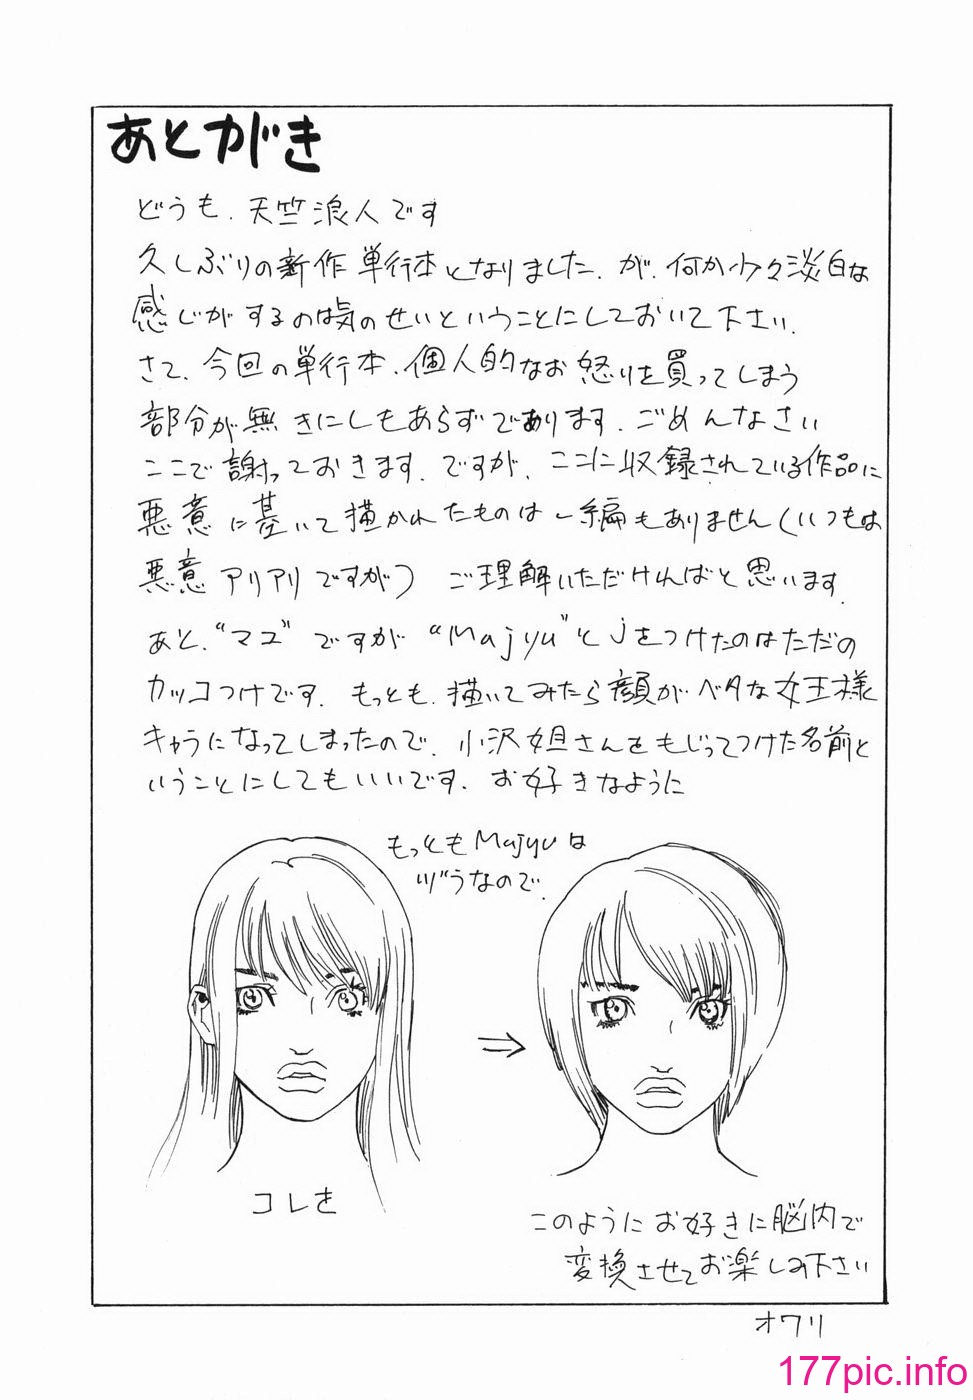 あとがき
どうも、天竺浪人です
久しぶりの新作単行本となりました、が、何か少々淡白な
感じがするのは気のせいということにしておいて下さい、
さて、今回の単行本、個人的なお怒りを買ってしまう
部分が無きにしもあらずであります、ごめんなさい
ここで謝っておきます、ですが、ここに収録されている作品に
悪意に基いて描かれたものは一編もありません(いつもは
悪意アリアリですが) ご理解いただければと思います、
あと、“マユ”ですが“Majyu”とjをつけたのはただの
カッコつけです、もっとも、描いてみたら顔がベタな女王様
キャラになってしまったので、小沢姐さんをもじってつけた名前と
いうことにしてもいいです、お好きなように
もっともMajyuは
ヅラなので、
→
コレを
このようにお好きに脳内で
変換させてお楽しみ下さい
オワリ
177pic.info